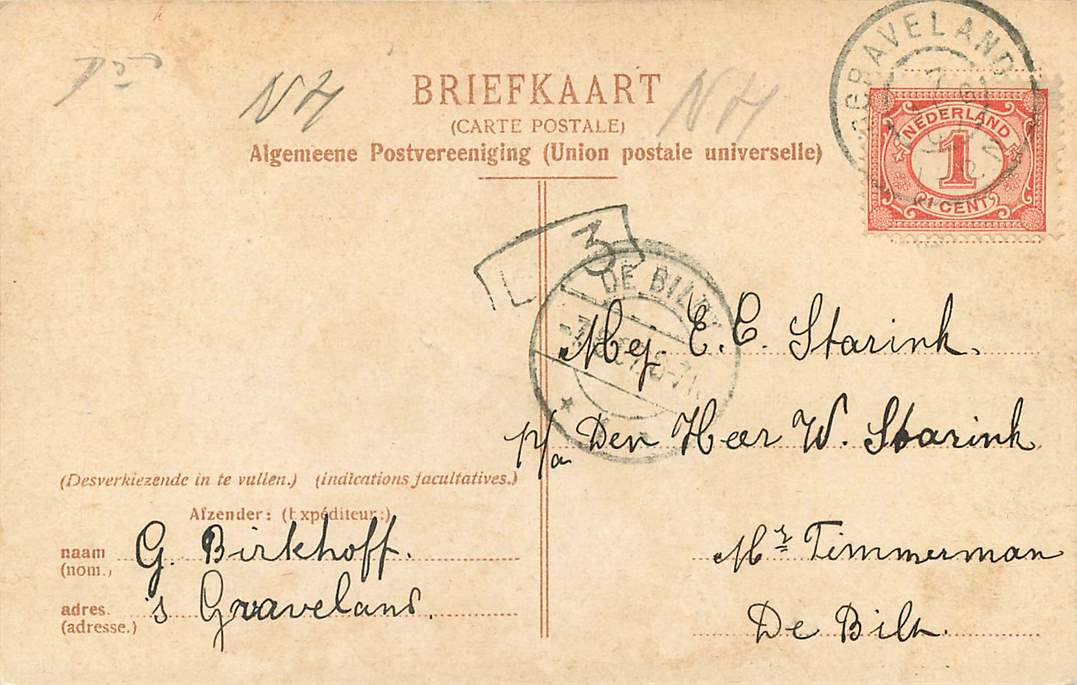 NH
BRIEFKAART
NH
(CARTE POSTALE)
Algemeene Postvereeniging (Union postale universelle)
NEDERLAND
1
1 CENT
L 3
DE BILT
Mej. E. C. Starink.
p/a Den Heer W. Starink
Mr Timmerman
De Bilt.
(Desverkiezende in te vullen.) (indications facultatives.)
Afzender: (Expéditeur:)
naam G. Birkhoff.
(nom.)
adres. 's Graveland.
(adresse.)